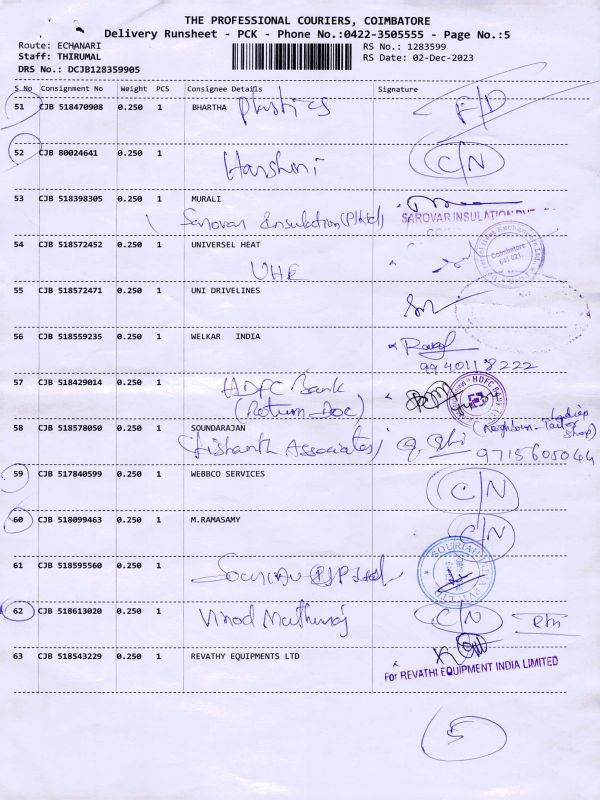 THE PROFESSIONAL COURIERS, COIMBATORE
Delivery Runsheet - PCK - Phone No.:0422-3505555 - Page No.:5
Route: ECHANARI RS No.: 1283599
Staff: THIRUMAL RS Date: 02-Dec-2023
DRS No.: DCJB128359905
S No Consignment No Weight PCS Consignee Details Signature
51 CJB 518470908 0.250 1 BHARTHA Plastics F/D
52 CJB 80024641 0.250 1 Harshni C/N
53 CJB 518398305 0.250 1 MURALI
Sarovar Insulation (P) Ltd) SAROVAR INSULATION PVT
54 CJB 518572452 0.250 1 UNIVERSEL HEAT
UHE Coimbatore 641 021.
55 CJB 518572471 0.250 1 UNI DRIVELINES
56 CJB 518559235 0.250 1 WELKAR INDIA
9940118222
57 CJB 518429014 0.250 1 HDFC Bank HDFC
(Return Doc)
58 CJB 518578050 0.250 1 SOUNDARAJAN Ladies
(neighbour-Tailor Shop)
Associates) 9715605044
59 CJB 517840599 0.250 1 WEBBCO SERVICES C/N
60 CJB 518099463 0.250 1 M.RAMASAMY C/N
61 CJB 518595560 0.250 1 SOURIAU
62 CJB 518613020 0.250 1 Vinod Mathuraj C/N
63 CJB 518543229 0.250 1 REVATHY EQUIPMENTS LTD
For REVATHI EQUIPMENT INDIA LIMITED
5